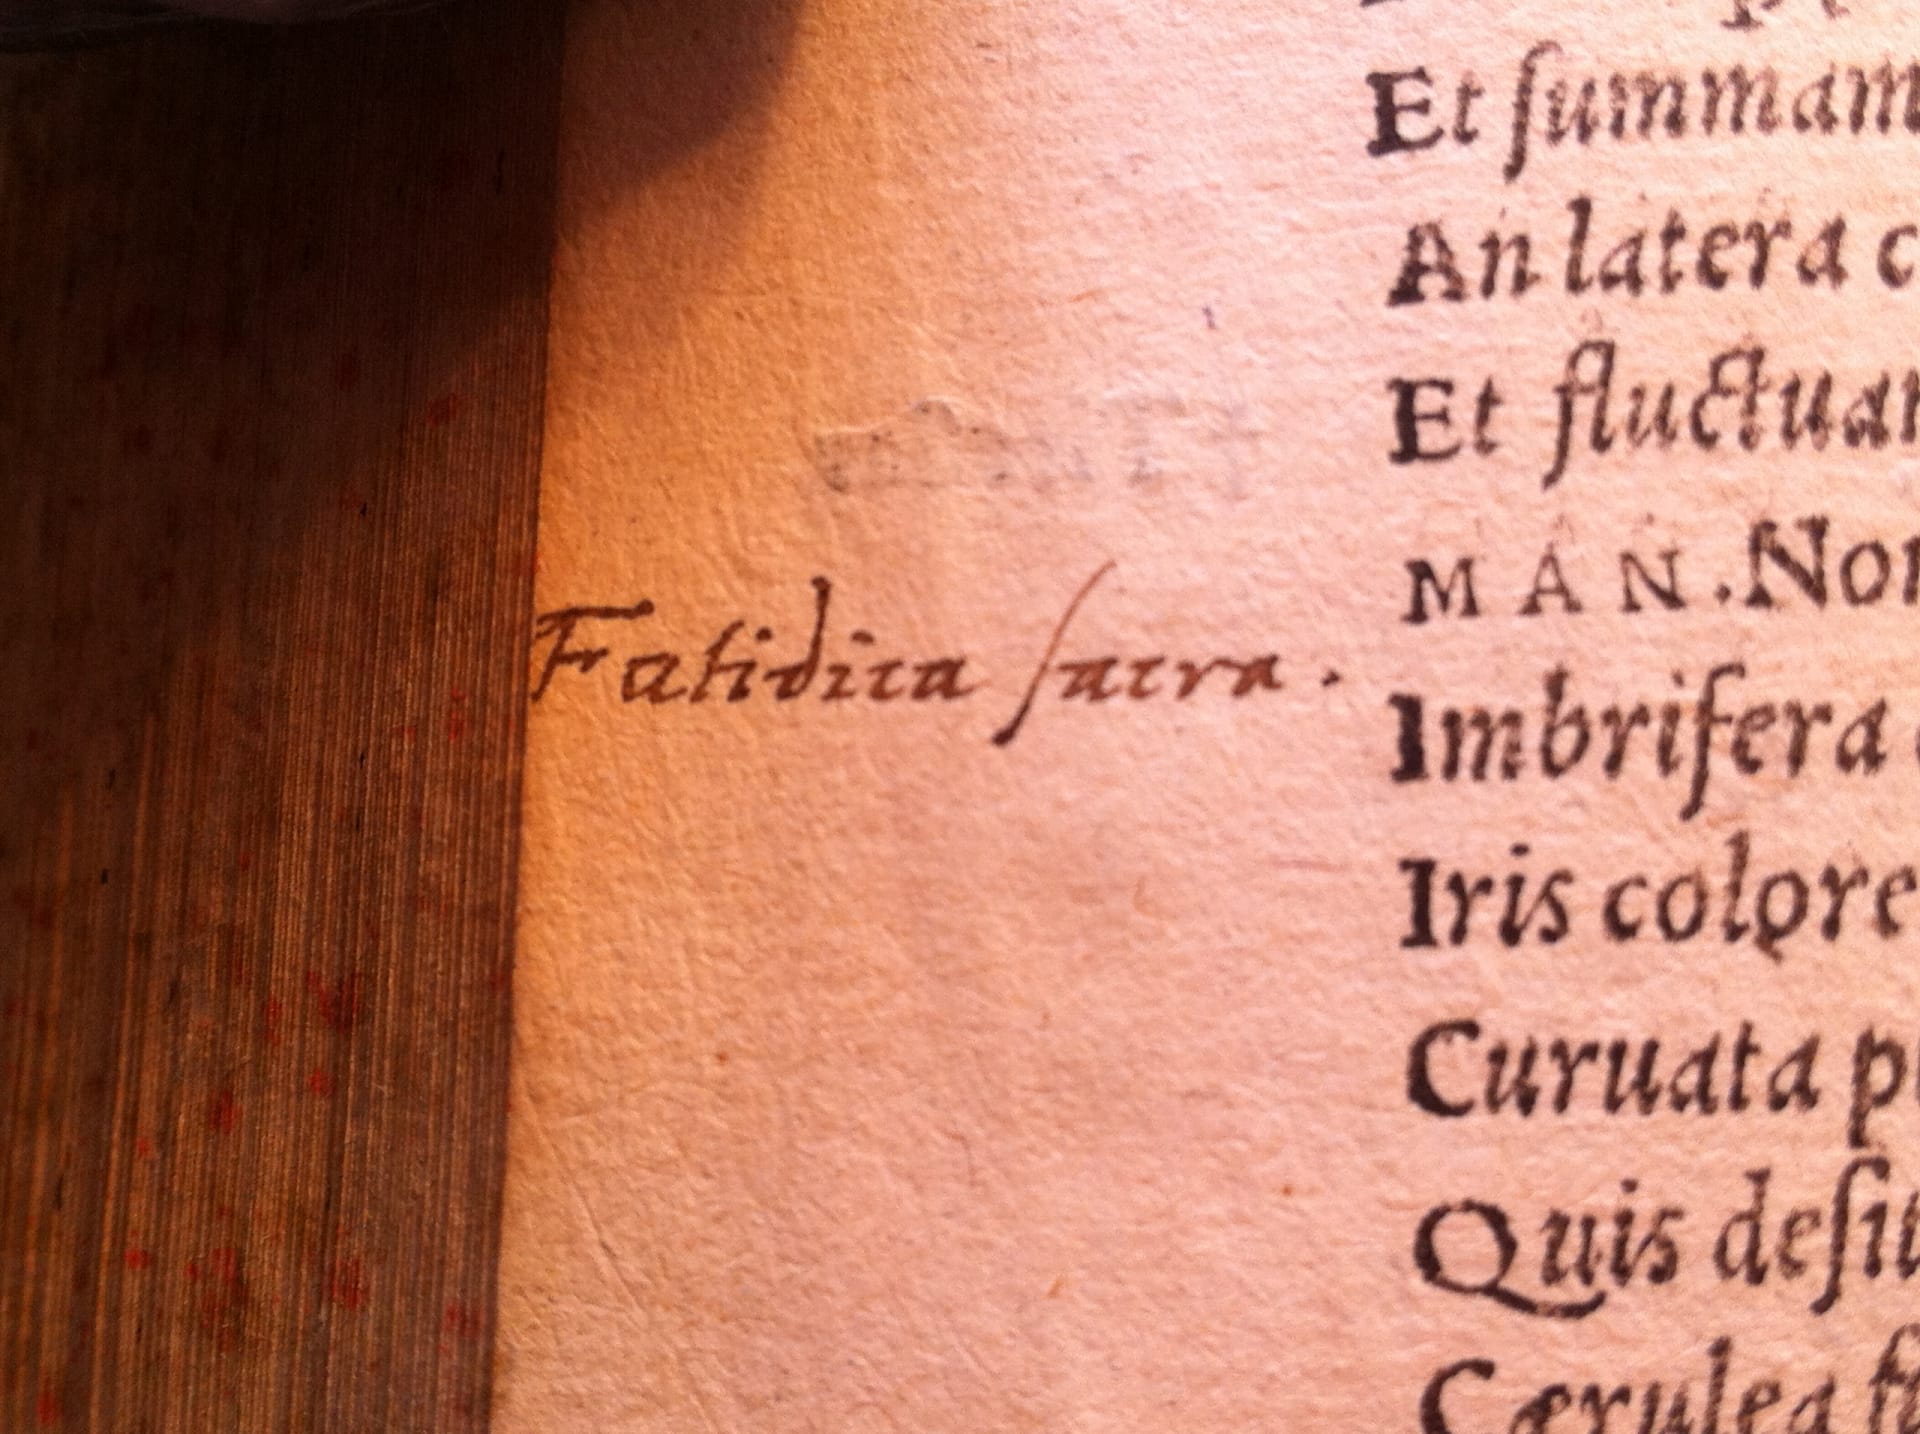 Et ſummam
An latera c
Et fluctuan
MAN. Non
Fatidica ſacra.
Imbrifera
Iris colore
Curuata pl
Quis deſit
Cærulea